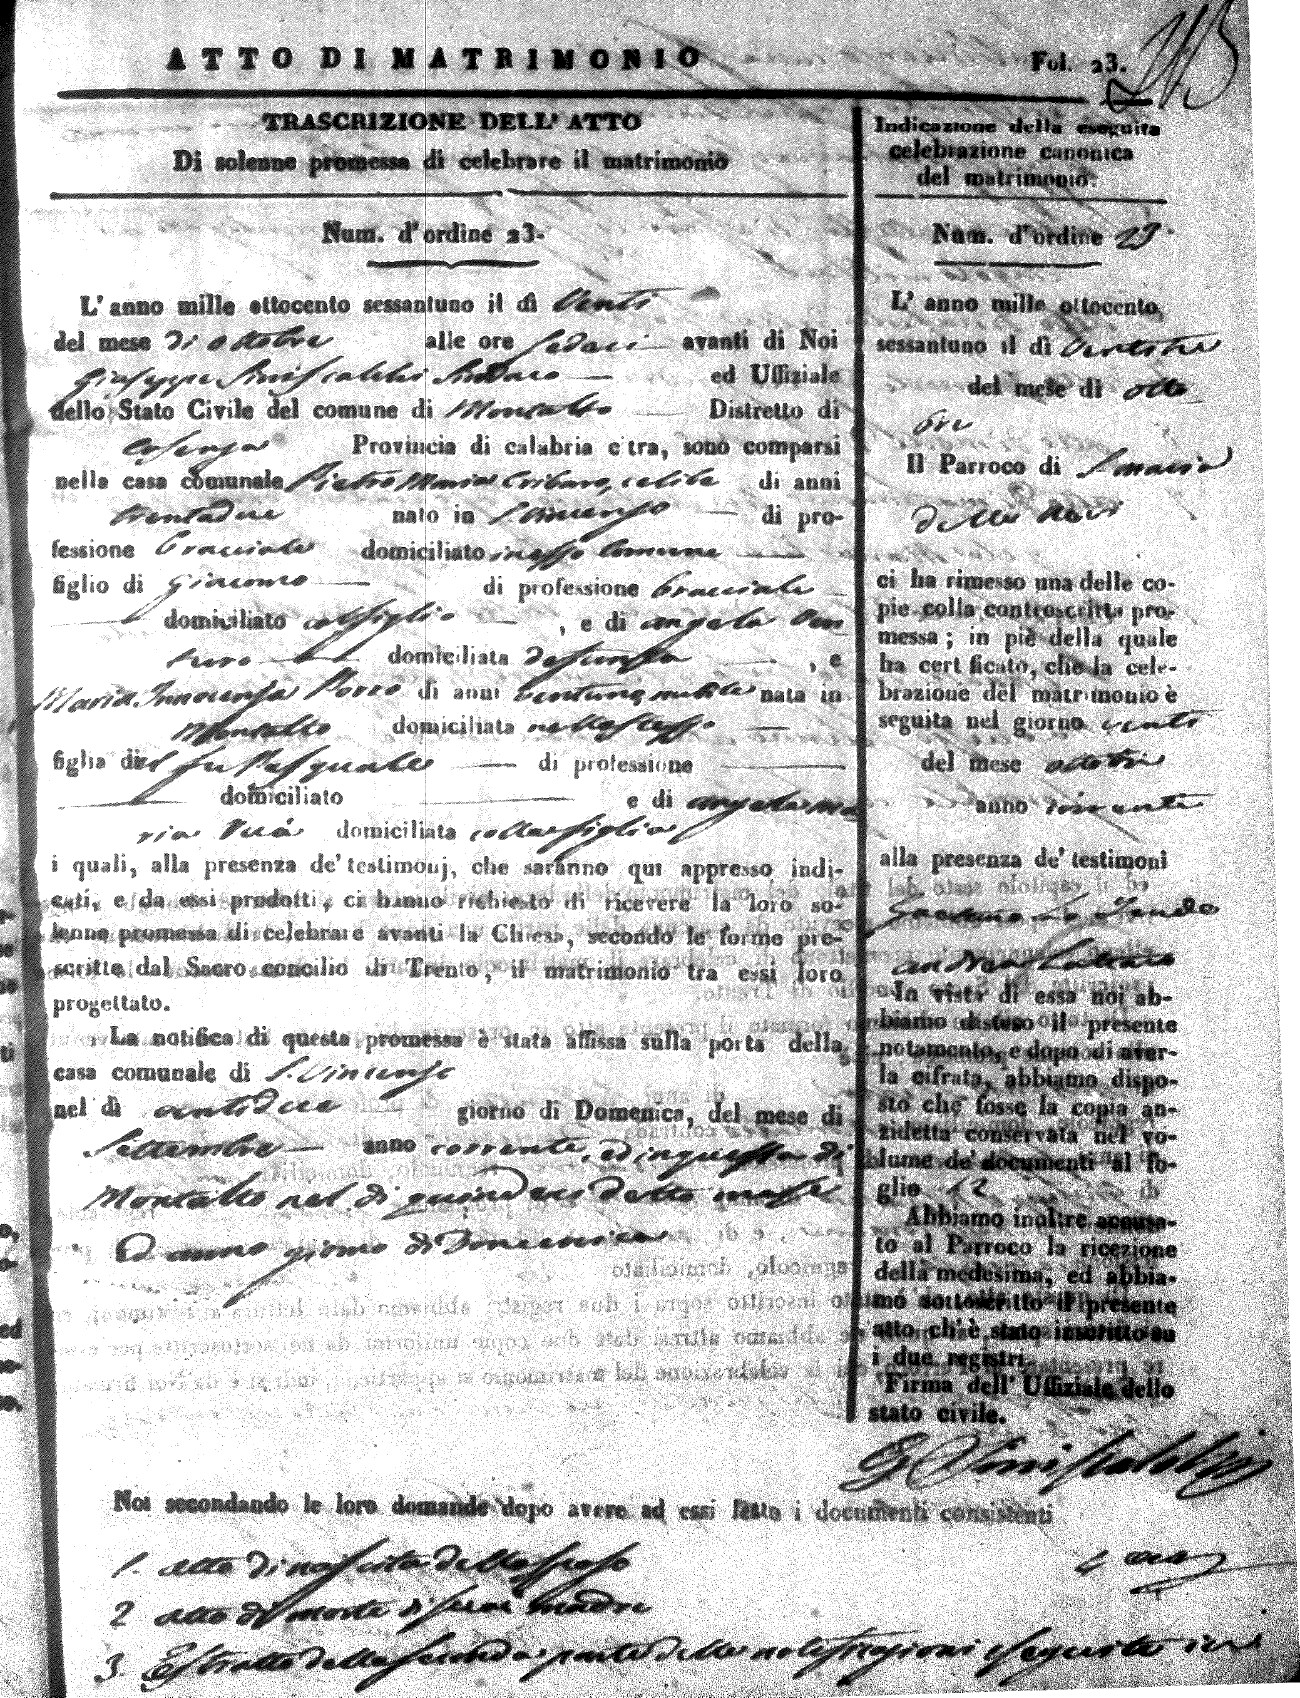 ATTO DI MATRIMONIO
Fol. 23.
TRASCRIZIONE DELL' ATTO
Di solenne promessa di celebrare il matrimonio
Num. d'ordine 23.
L' anno mille ottocento sessantuno il dì Venti
del mese di ottobre alle ore sedeci avanti di Noi
Giuseppe Siniscalchi Sindaco ed Uffiziale
dello Stato Civile del comune di Montalto Distretto di
Cosenza Provincia di calabria citra, sono comparsi
nella casa comunale Pietro Maria Cribaro, celibe di anni
trentadue nato in S. Vincenzo di pro-
fessione bracciale domiciliato in esso Comune
figlio di Giacomo di professione bracciale
domiciliato col figlio , e di angela Ven
turo domiciliata defunta , e
Maria Innocenza Porco di anni ventuno, nubile nata in
Montalto domiciliata nello stesso
figlia del fu Pasquale di professione
domiciliato e di angela ma
ria domiciliata colla figlia
i quali, alla presenza de' testimonj, che saranno qui appresso indi-
cati, e da essi prodotti, ci hanno richiesto di ricevere la loro so-
lenne promessa di celebrare avanti la Chiesa, secondo le forme pre-
scritte dal Sacro concilio di Trento, il matrimonio tra essi loro
progettato.
La notifica di questa promessa è stata affissa sulla porta della
casa comunale di S. Vincenzo
nel dì ventidue giorno di Domenica, del mese di
Settembre anno corrente, ed in questa di
Montalto nel di quindeci detto mese
ed anno giorno di Domenica
Indicazione della eseguita
celebrazione canonica
del matrimonio.
Num. d'ordine 23
L' anno mille ottocento
sessantuno il dì ventitre
del mese di otto
bre
Il Parroco di S. maria
della
ci ha rimesso una delle co-
pie colla controscritta pro-
messa; in piè della quale
ha certificato, che la cele-
brazione del matrimonio è
seguita nel giorno venti
del mese ottobre
anno corrente
alla presenza de' testimoni
Gaetano
andrea
In vista di essa noi ab-
biamo disteso il presente
notamento, e dopo di aver-
la cifrata, abbiamo dispo-
sto che fosse la copia an-
zidetta conservata nel vo-
lume de' documenti al fo-
glio 12
Abbiamo inoltre accusa-
to al Parroco la ricezione
della medesima, ed abbia-
mo sottoscritto il presente
atto ch'è stato inscritto su
i due registri.
Firma dell' Uffiziale dello
stato civile.
G Siniscalchi
Noi secondando le loro domande dopo avere ad essi letto i documenti consistenti
1. atto di nascita dello sposo
2 atto di morte di sua madre
3 Estratto della scheda parte delle notificazioni eseguite in